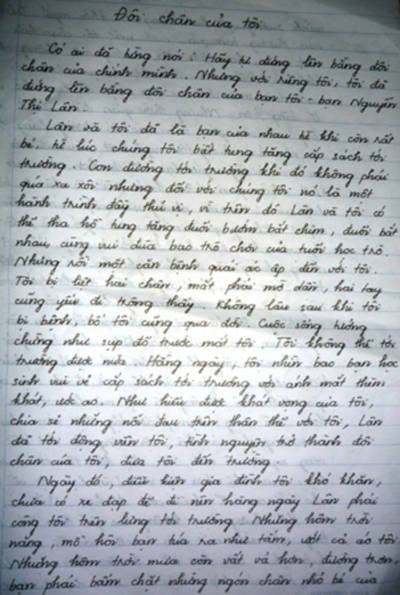 Đôi chân của tôi
Có ai đã từng nói: Hãy tự đứng lên bằng đôi
chân của chính mình. Nhưng với riêng tôi, tôi đã
đứng lên bằng đôi chân của bạn tôi - bạn Nguyễn
Thị Lân.
Lân và tôi đã là bạn của nhau kể khi còn rất
bé, kể lúc chúng tôi bắt tung tăng cắp sách tới
trường. Con đường tới trường khi đó không phải
quá xa xôi nhưng đối với chúng tôi nó là một
hành trình đầy thú vị, vì trên đó Lân và tôi có
thể tha hồ tung tăng đuổi bướm bắt chim, đuổi bắt
nhau, cùng vui đùa bao trò chơi của tuổi học trò.
Nhưng rồi một căn bệnh quái ác ập đến với tôi.
Tôi bị liệt hai chân, mắt phải mờ dần, hai tay
cũng yếu đi trông thấy. Không lâu sau khi tôi
bị bệnh, bố tôi cũng qua đời. Cuộc sống tưởng
chừng như sụp đổ trước mắt tôi. Tôi không thể tới
trường được nữa. Hằng ngày, tôi nhìn bao bạn học
sinh vui vẻ cắp sách tới trường với ánh mắt thèm
khát, ước ao. Như hiểu được khát vọng của tôi,
chia sẻ những nỗi đau trên thân thể với tôi, Lân
đã tới động viên tôi, tình nguyện trở thành đôi
chân của tôi, đưa tôi đến trường.
Ngày đó, điều kiện gia đình tôi khó khăn,
chưa có xe đạp để đi nên hàng ngày Lân phải
cõng tôi trên lưng tới trường. Những hôm trời
nắng, mồ hôi bạn túa ra như tắm, ướt cả áo tôi.
Những hôm trời mưa còn vất vả hơn, đường trơn,
bạn phải bấm chặt những ngón chân nhỏ bé của